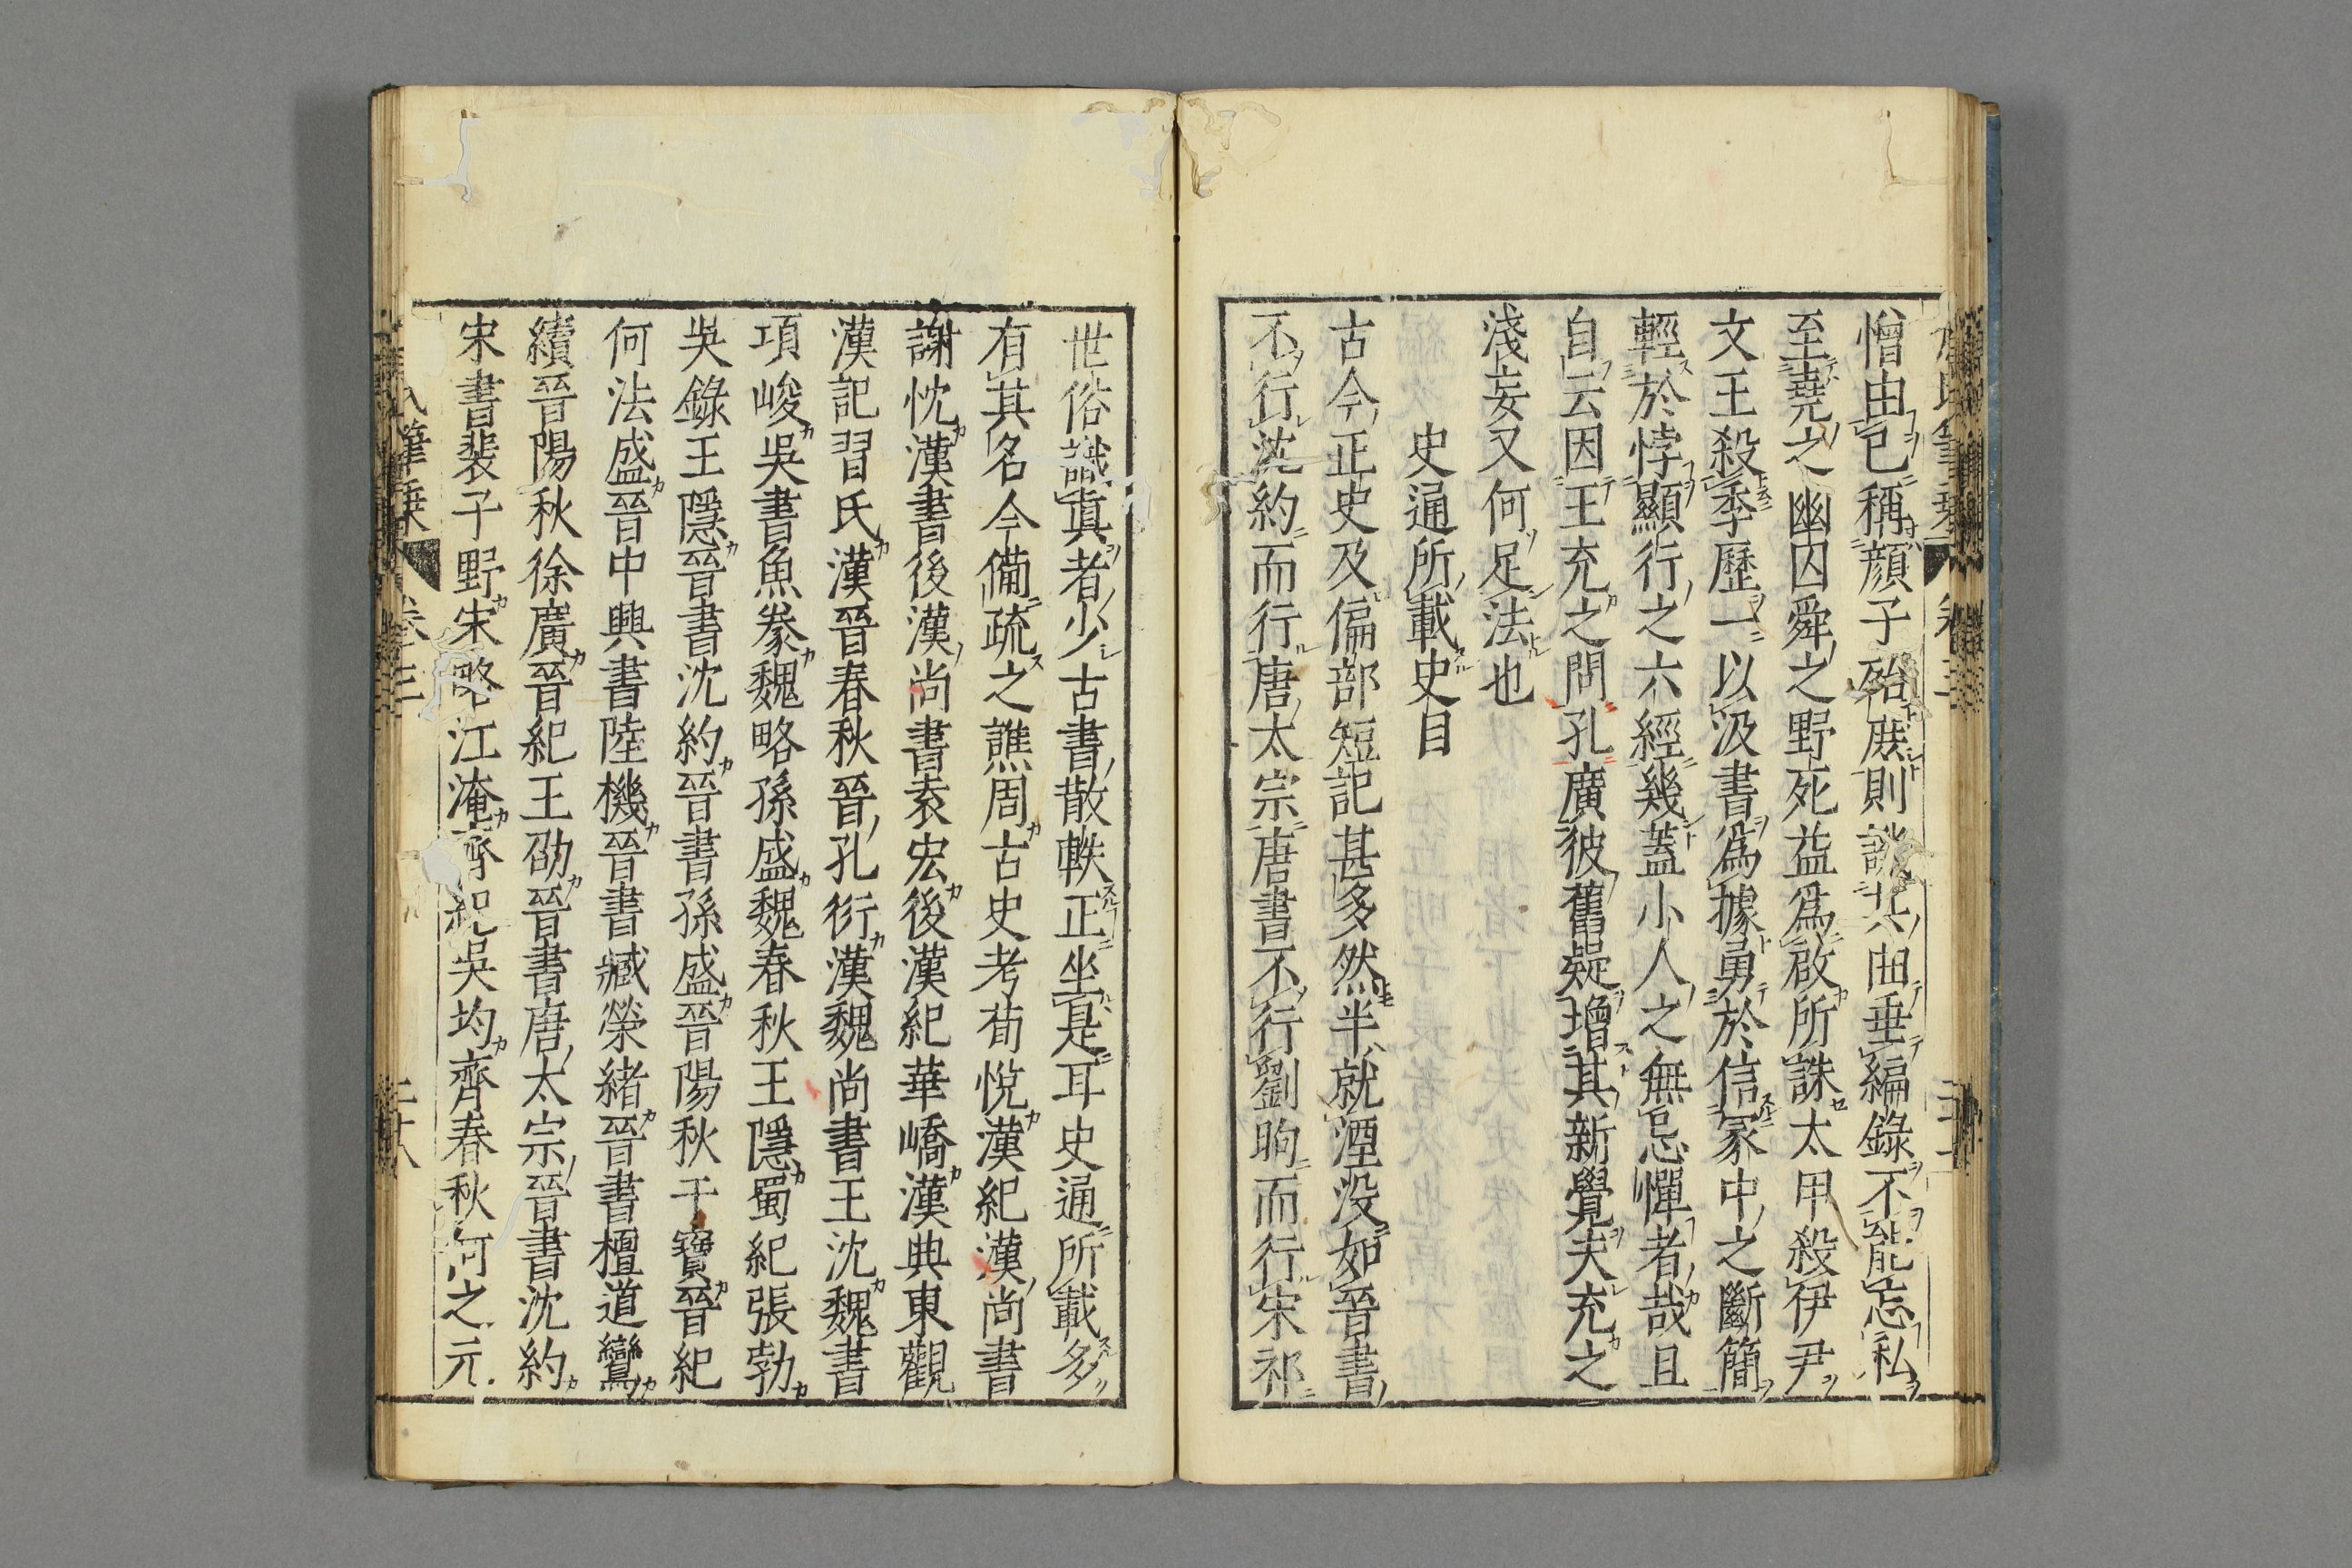 憎由已稱顏子殆庶則談共由垂編錄不能忘私
至堯之幽囚舜之野死益爲啟所誅太甲殺伊尹
文王殺季歷一以汲書爲據勇於信冢中之斷簡
輕於悖顯行之六經幾蓋小人之無忌憚者哉且
自云因王充之問孔廣彼舊疑增其新覺夫充之
淺妄又何足法也
史通所載史目
古今正史及偏部短記甚多然半就湮没如晉書
不行沈約而行唐太宗唐書不行劉昫而行宋祁
世俗識真者少古書散軼正坐是耳史通所載多
有其名今備疏之譙周古史考荀悅漢紀漢尚書
謝忱漢書後漢尚書袁宏後漢紀華嶠漢典東觀
漢記習氏漢晉春秋晉孔衍漢魏尚書王沈魏書
項峻吳書魚豢魏略孫盛魏春秋王隱蜀紀張勃
吳錄王隱晉書沈約晉書孫盛晉陽秋干寶晉紀
何法盛晉中興書陸機晉書臧榮緒晉書檀道鸞
續晉陽秋徐廣晉紀王劭晉書唐太宗晉書沈約
宋書裴子野宋略江淹齊紀吳均齊春秋何之元
氏筆乗 卷三 三十八